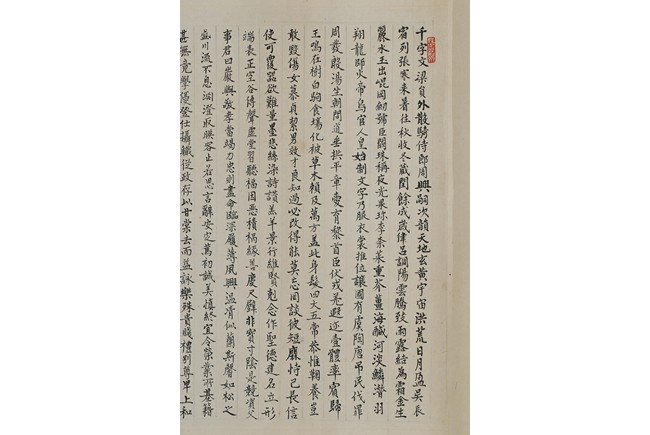 千字文 梁員外散騎侍郎周興嗣次韻天地玄黃宇宙洪荒日月盈昃辰
宿列張寒來暑往秋收冬藏閏餘成歲律呂調陽雲騰致雨露結為霜金生
麗水玉出崐岡劍號巨闕珠稱夜光果珍李柰菜重芥薑海鹹河淡鱗潛羽
翔龍師火帝鳥官人皇始制文字乃服衣裳推位讓國有虞陶唐弔民伐罪
周發殷湯坐朝問道垂拱平章愛育黎首臣伏戎羌遐邇壹體率賓歸
王鳴在樹白駒食場化被草木賴及萬方蓋此身髮四大五常恭惟鞠養豈
敢毀傷女慕貞絜男效才良知過必改得能莫忘罔談彼短靡恃己長信
使可覆器欲難量墨悲絲染詩讚羔羊景行維賢剋念作聖德建名立形
端表正空谷傳聲虛堂習聽福因惡積禍緣善慶尺璧非寶寸陰是競資父
事君曰嚴與敬孝當竭力忠則盡命臨深履薄夙興溫清似蘭斯馨如松之
盛川流不息淵澄取暎容止若思言辭安定篤初誠美慎終宜令榮業所基籍
甚無竟學優登仕攝職從政存以甘棠去而益詠樂殊貴賤禮別尊卑上和